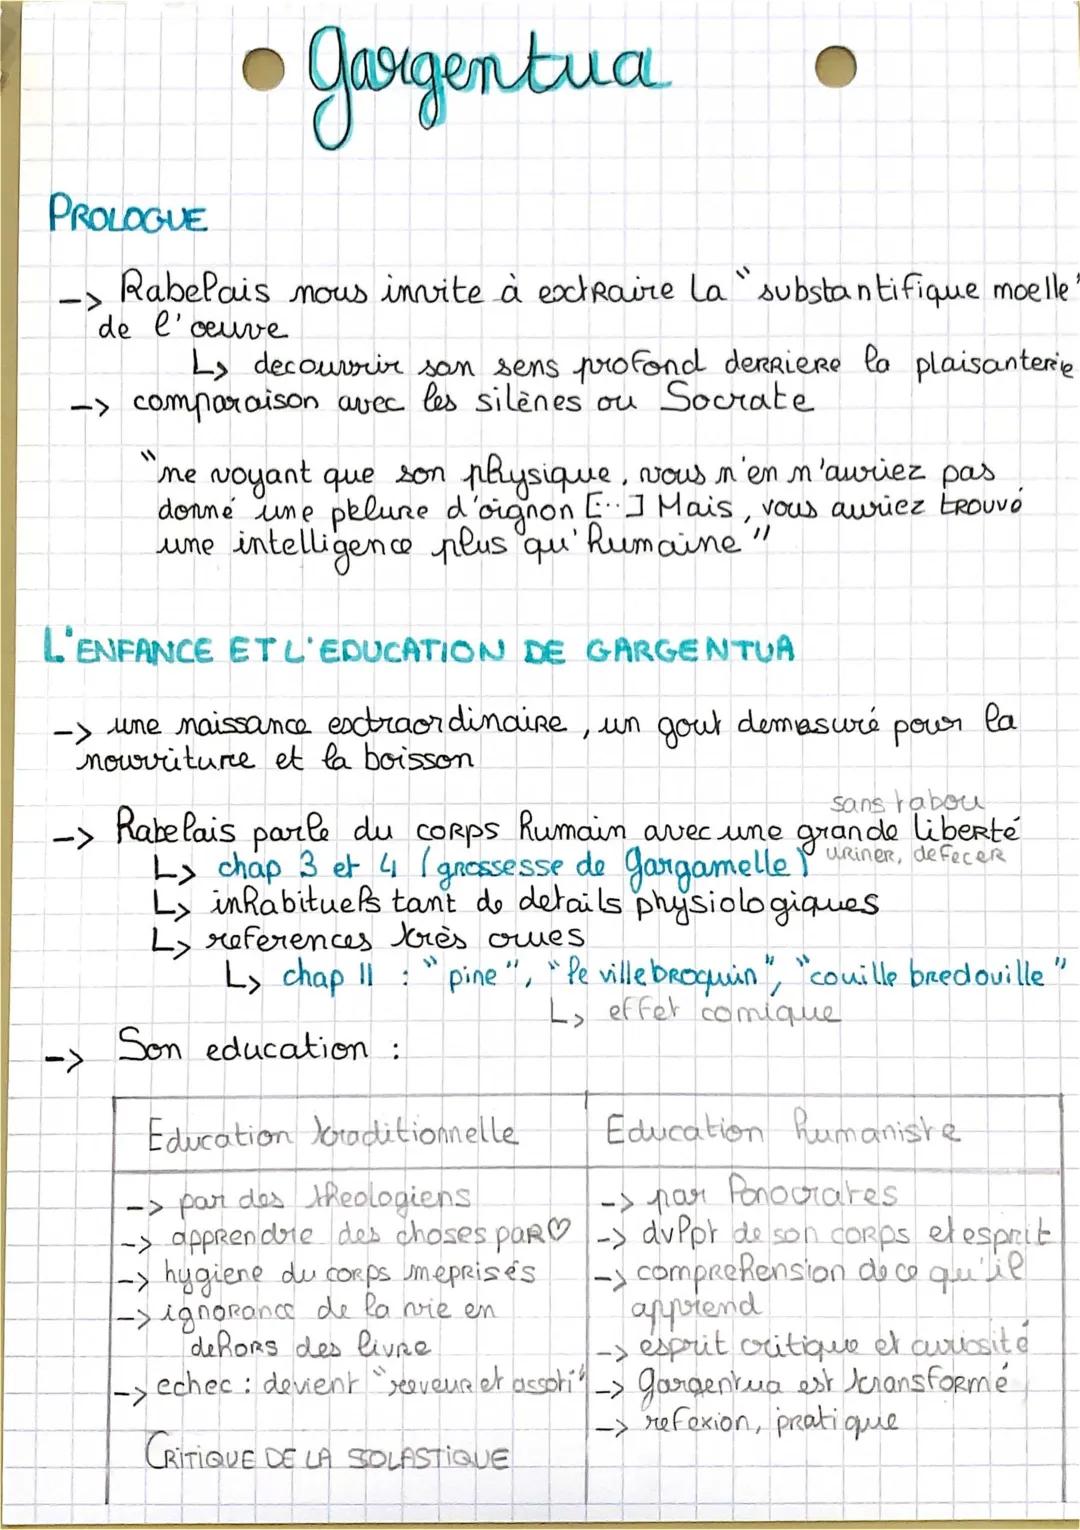 gargentua
PROLOGUE
-> Rabelais nous invite à extraire la "substantifique moelle"
de l'œuvre
↳ decouvrir son sens profond derriere la plaisanterie
-> comparaison avec les silènes ou Socrate
"ne voyant que son physique, vous n'en n'auriez pas
donné une pelure d'oignon [...] Mais, vous auriez trouvé
une intelligence plus qu'humaine"
L'ENFANCE ET L'EDUCATION DE GARGENTUA
-> une naissance extraordinaire, un gout demesuré pour la
nourriture et la boisson
sans tabou
-> Rabelais parle du corps humain avec une grande liberté
↳ chap 3 et 4 (grossesse de gargamelle) uriner, defecer
↳ inhabituels tant de details physiologiques
↳ references très crues
↳ chap 11 : "pine", "le villebroquin", "couille bredouille"
↳ effet comique
-> Son education :
Education traditionnelle
-> par des theologiens
-> apprendre des choses par ♡
-> hygiene du corps meprisés
-> ignorance de la vie en
dehors des livre
-> echec : devient "reveur et assoti"
CRITIQUE DE LA SOLASTIQUE
Education humaniste
-> par Ponocrates
-> dvlppt de son corps et esprit
-> comprehension de ce qu'il
apprend
-> esprit critique et curiosité
-> gargentua est transformé
-> refexion, pratique